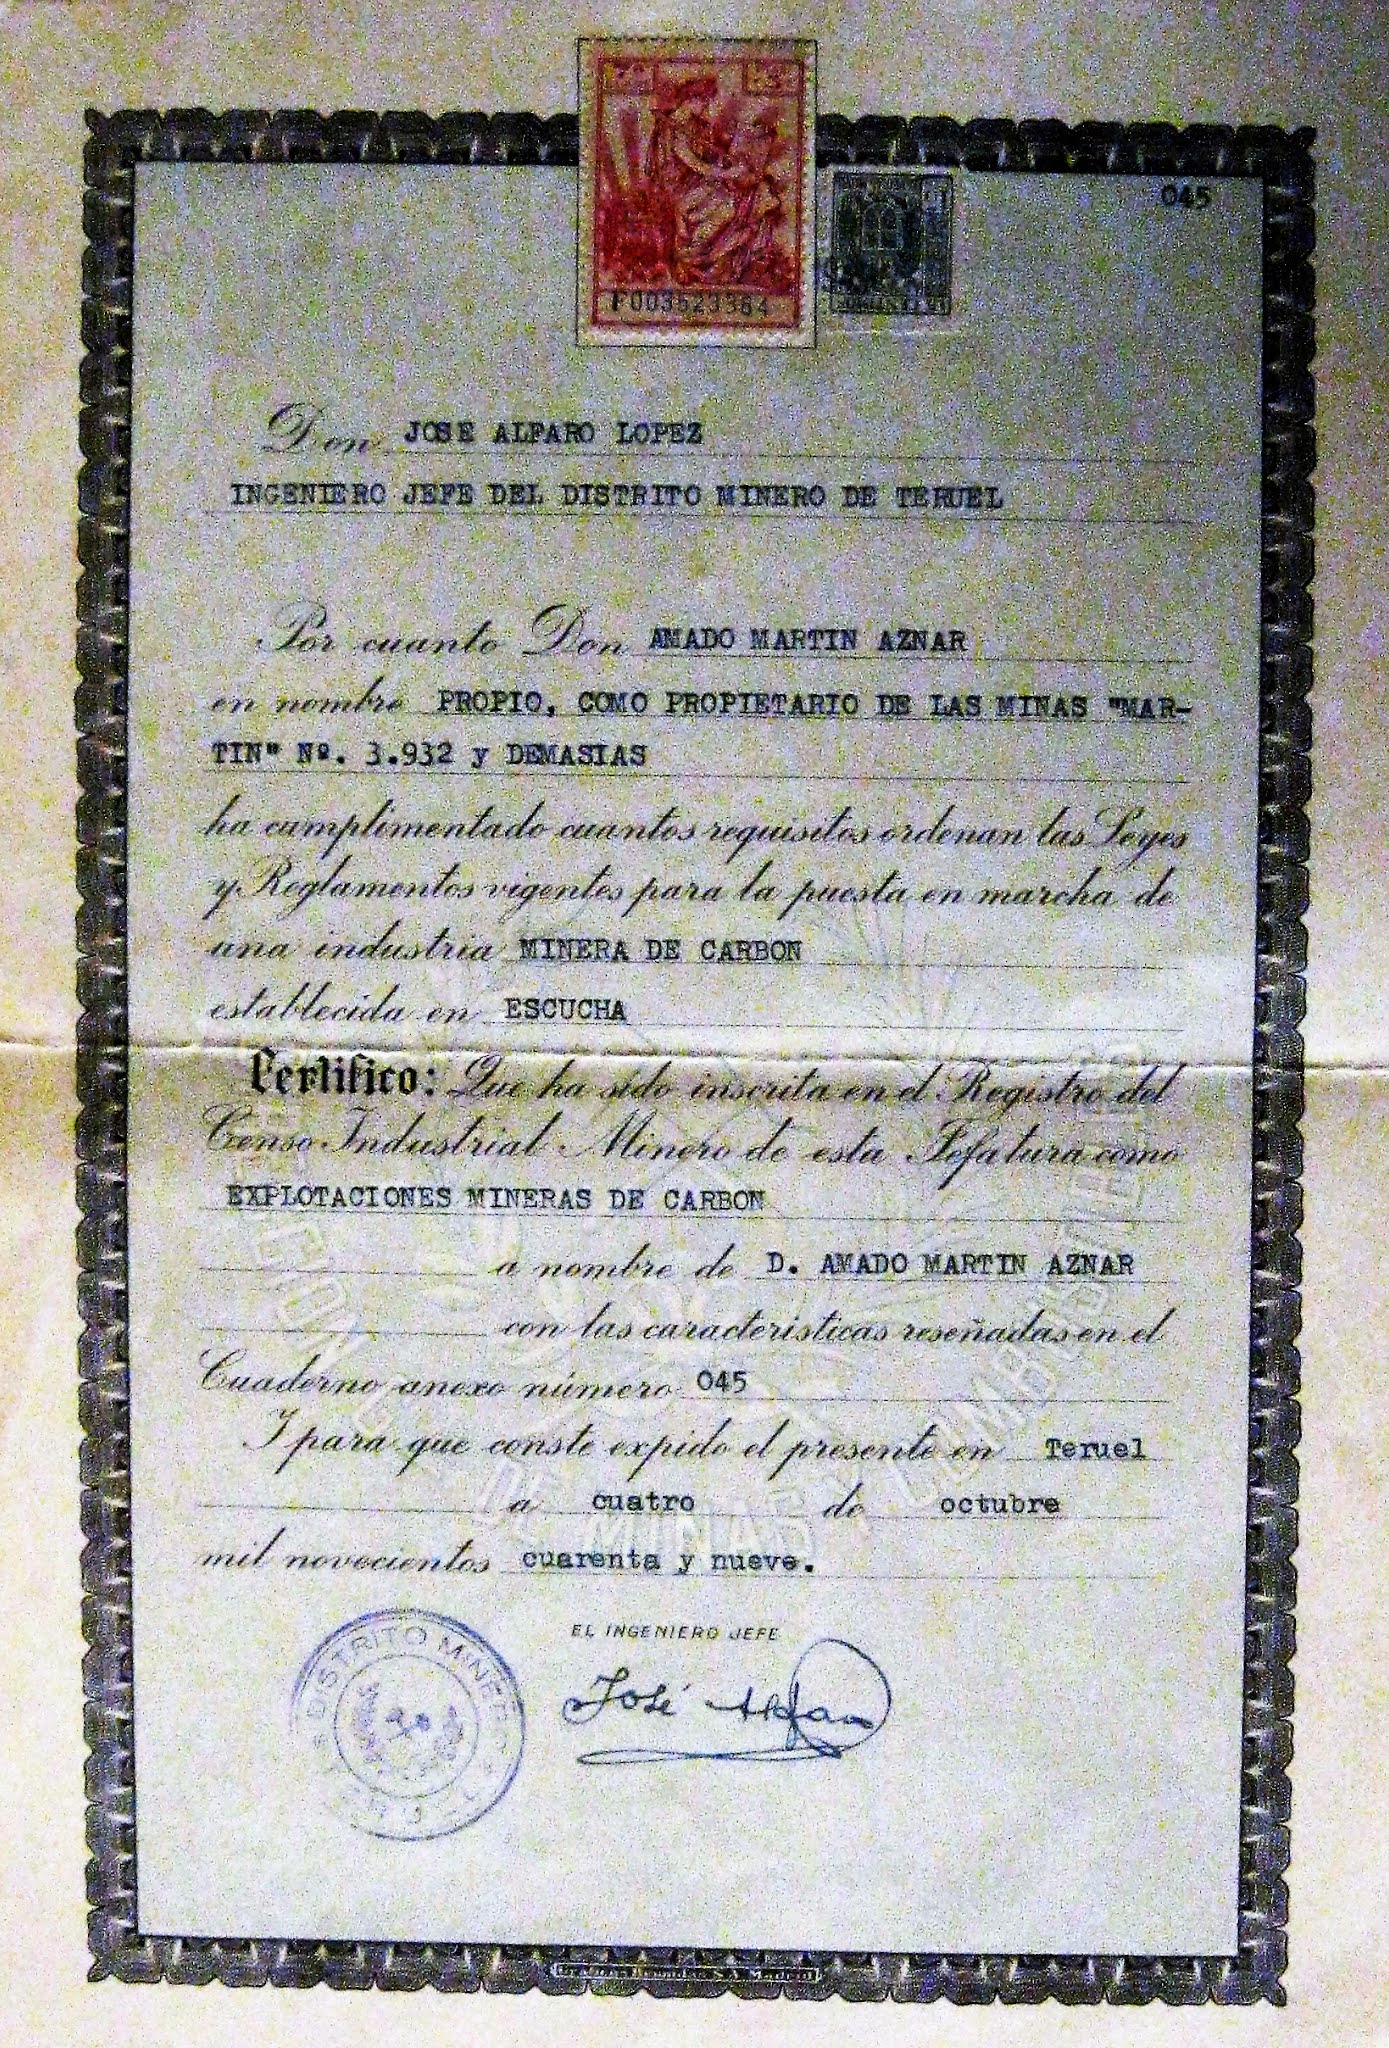 045
F003523384
Don JOSE ALFARO LOPEZ
INGENIERO JEFE DEL DISTRITO MINERO DE TERUEL
Por cuanto Don AMADO MARTIN AZNAR
en nombre PROPIO, COMO PROPIETARIO DE LAS MINAS "MAR-
TIN" Nº. 3.932 y DEMASIAS
ha cumplimentado cuantos requisitos ordenan las Leyes
y Reglamentos vigentes para la puesta en marcha de
una industria MINERA DE CARBON
establecida en ESCUCHA
Certifico: Que ha sido inscrita en el Registro del
Censo Industrial Minero de esta Jefatura como
EXPLOTACIONES MINERAS DE CARBON
a nombre de D. AMADO MARTIN AZNAR
con las características reseñadas en el
Cuaderno anexo número 045
Y para que conste expido el presente en Teruel
a cuatro de octubre
mil novecientos cuarenta y nueve.
EL INGENIERO JEFE
José Alfaro
DISTRITO MINERO
DE MINAS Y COMBUSTIBLES
S.A. Madrid